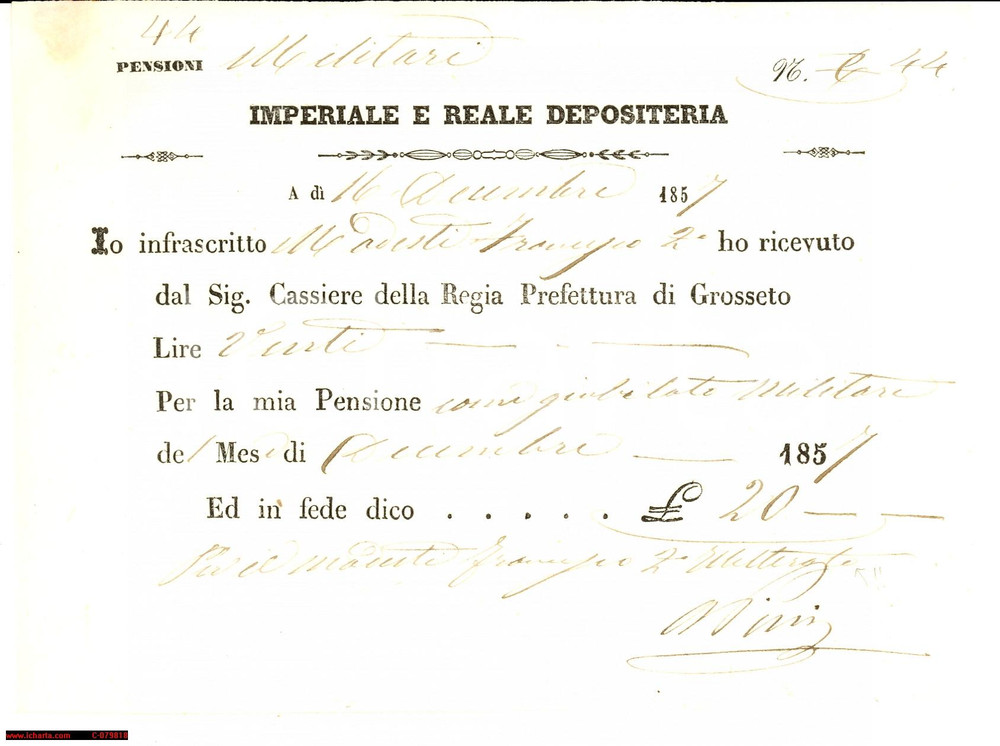 44
PENSIONI Militari N. 44
IMPERIALE E REALE DEPOSITERIA
A dì 16 Decembre 1857
Io infrascritto Modesti Francesco 2º ho ricevuto
dal Sig. Cassiere della Regia Prefettura di Grosseto
Lire Venti
Per la mia Pensione come giubilato Militare
del Mese di Decembre 1857
Ed in fede dico . . . . . . £ 20
Per il Modesti Francesco 2º Illetterato
www.icharta.com C-079818